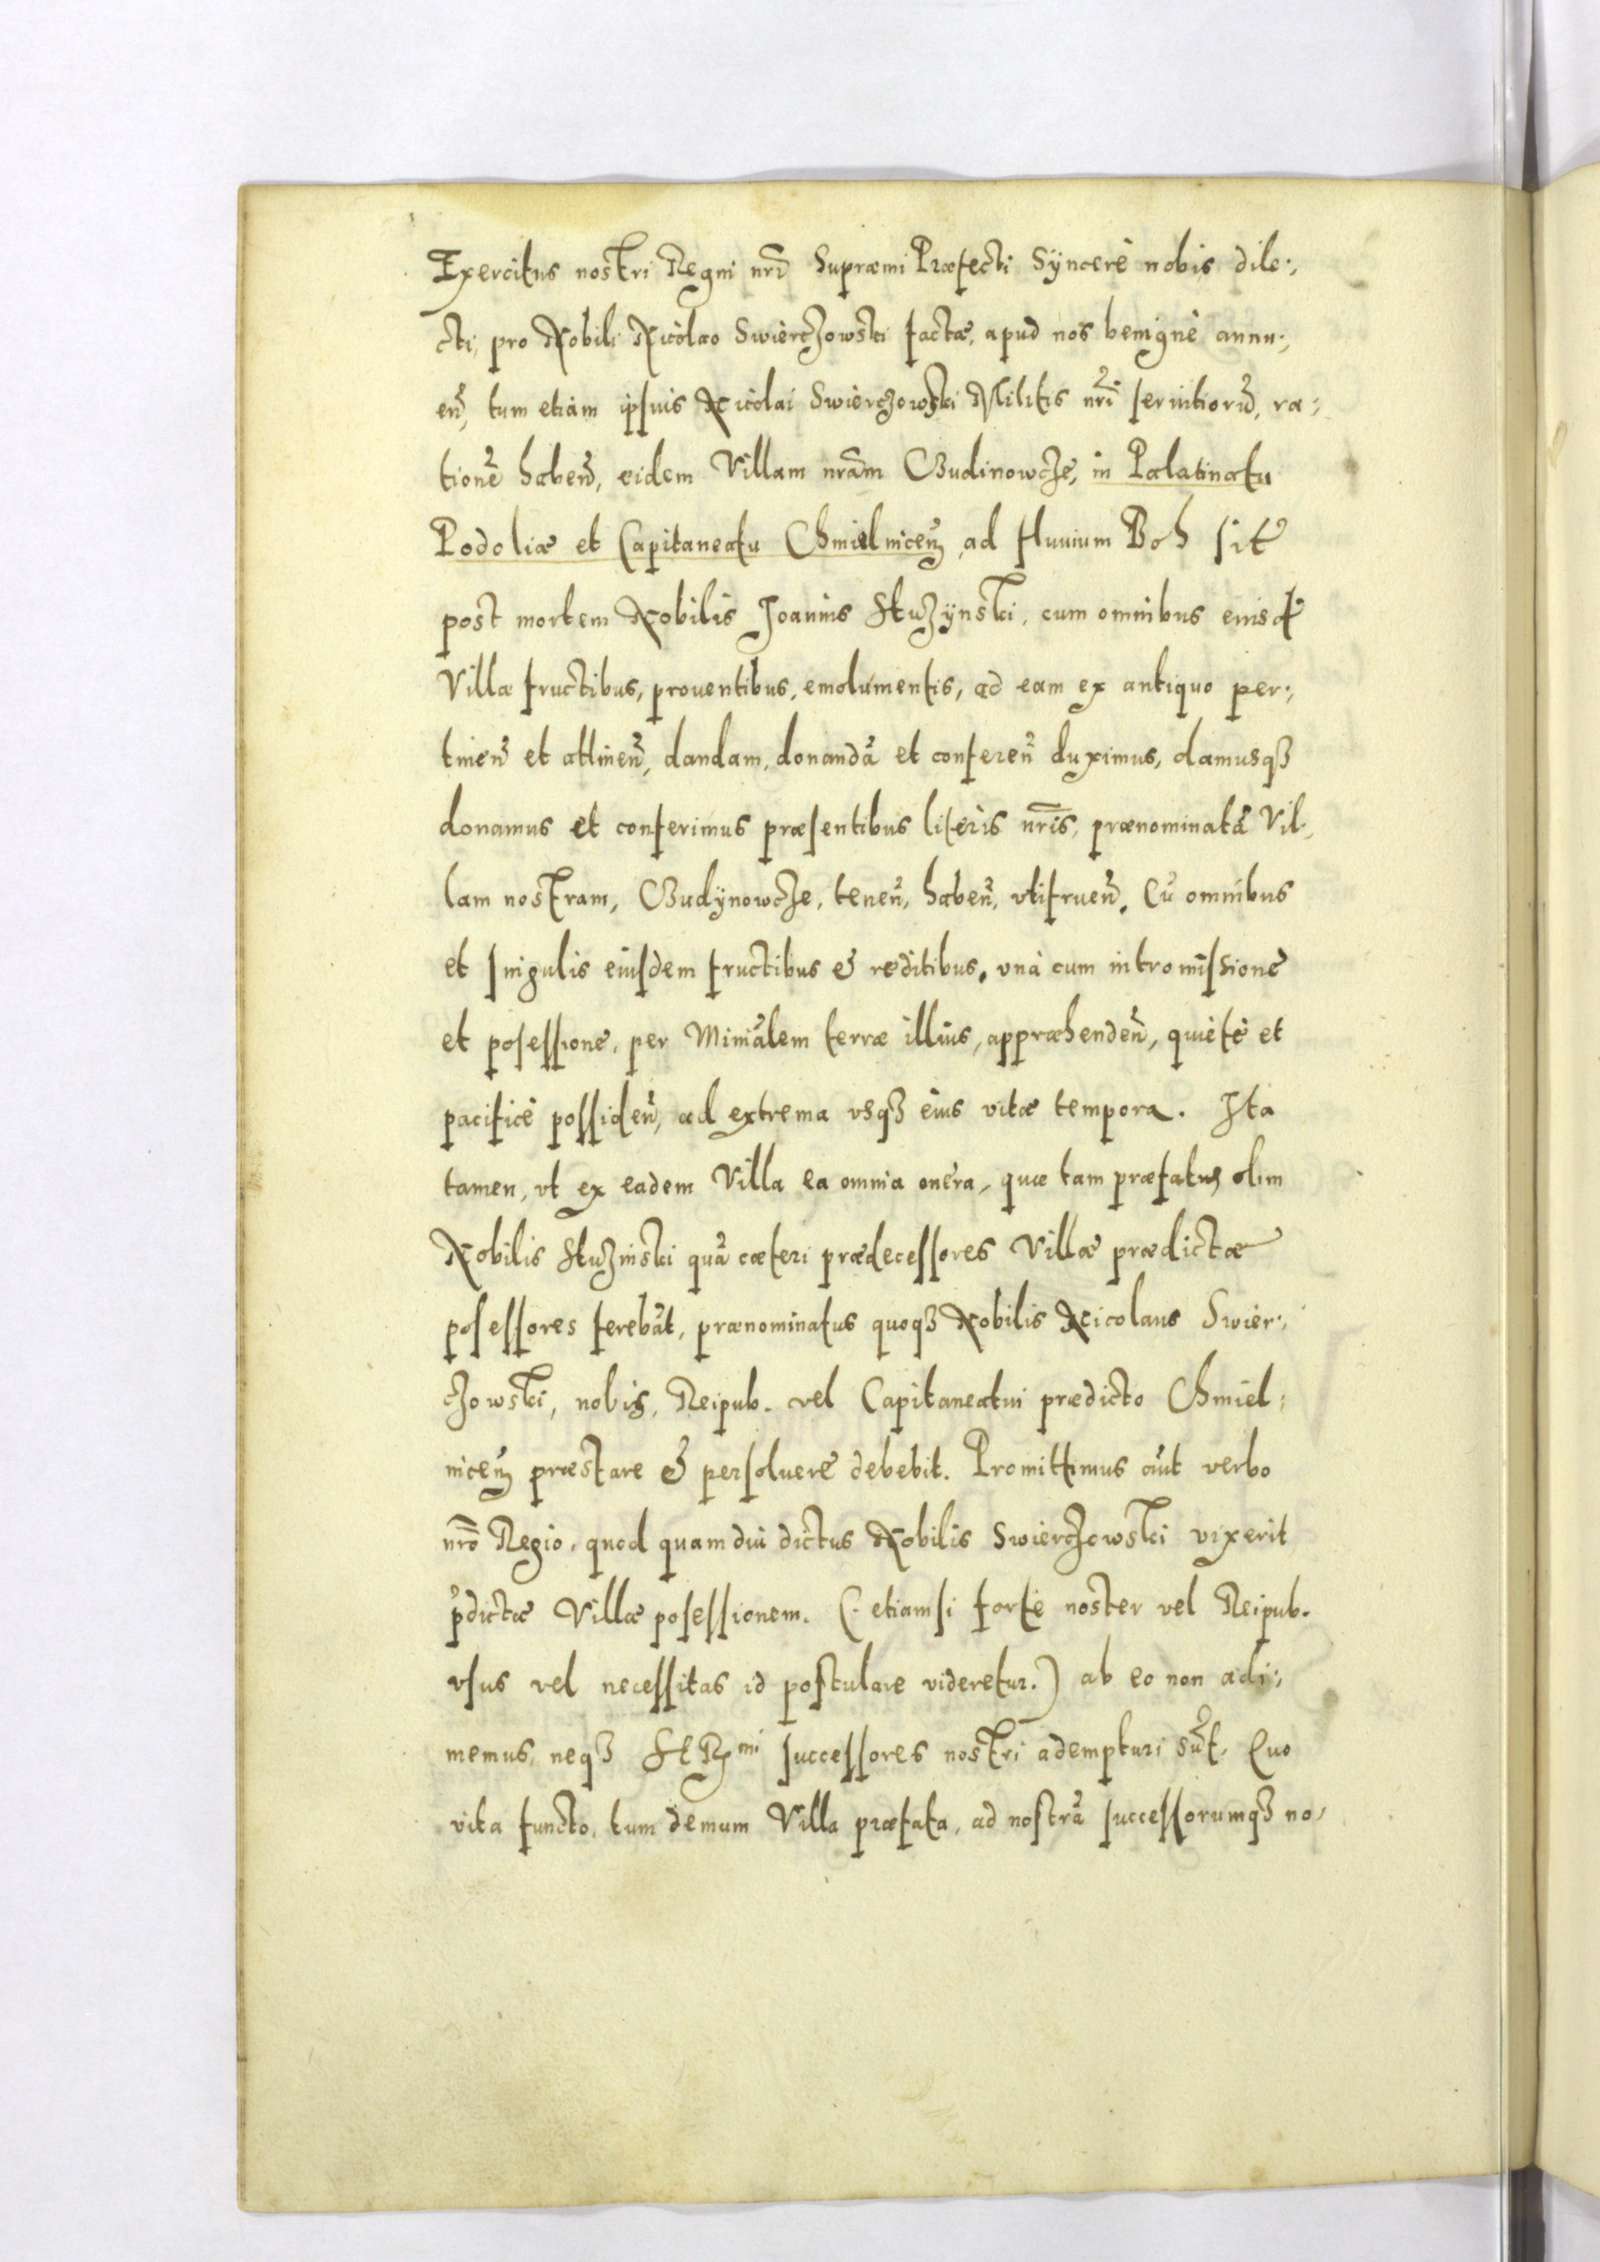 Exercitus nostri Regni nri Supræmi Præfecti Synceré nobis dile:,
cti, pro Nobili Nicolao Swierczowski factæ, apud nos benigné annu:,
eñ, tum etiam ipsius Nicolai Swierczowski Militis nri seruitiorũ, ra:,
tionẽ habeñ, eidem Villam nrãm Budinowcze, in Palatinatu
Podoliæ et Capitaneatu Chmielniceñ, ad fluuium Boh sit
post mortem Nobilis Joannis Stuzÿnski, cum omnibus eiusd
Villæ fructibus, prouentibus, emolumentis, ad eam ex antiquo per:,
tineñ et attineñ, dandam, donandã et confereñ duximus, damusqз
donamus et conferimus præsentibus literis nrĩs, prænominatã Vil,
lam nostram, Budÿnowcze, teneñ, habeñ, vtifrueñ. Cũ omnibus
et singulis eiusdem fructibus & reditibus, vná cum intromissione
et posessione, per Miniãlem terræ illius, appræhendeñ, quieté et
pacificé possideñ, ad extrema vsqз eius vitæ tempora. Ita
tamen, vt ex eadem Villa ea omnia onera, quæ tam præfatus olim
Nobilis Stuzinski quã cæteri prædecessores Villæ prædictæ
posessores ferebãt, prænominatus quoqз Nobilis Nicolaus Swier:,
czowski, nobis, Reipub. vel Capitaneatui prædicto Chmiel:
niceñ præstare & persoluere debebit. Promittimus aũt verbo
nrõ Regio, quod quamdiu dictus Nobilis Swierczowski vixerit
p̃dictæ Villæ posessionem. (. etiamsi forté noster vel Reipub.
vsus vel necessitas id postulare videretur.) ab eo non adi:,
memus, neqз Se Rmi successores nostri adempturi sũt. Quo
vita functo, tum demum Villa præfata, ad nostrã successorumqз no,